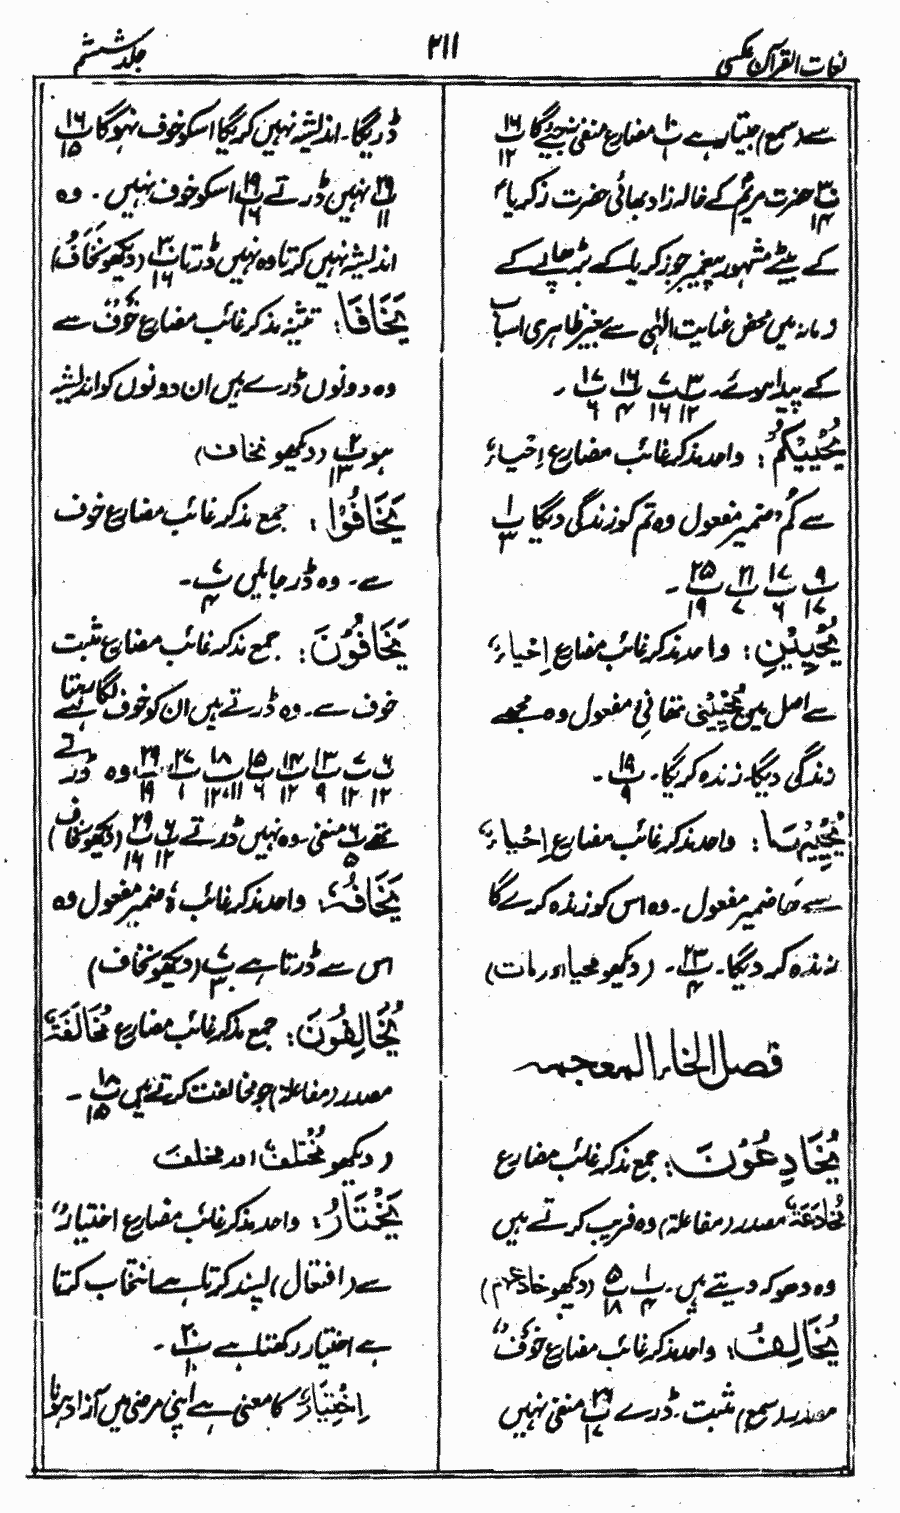 لغات القرآن عکسی
۲۱۱
جلد ششم
سے (سمع) جیتا رہے پ۱۰/۱ مضارع منفی نہ جئے گا پ۱۶/۱۲
پ۳/۱۴ حضرت مریم کے خالہ زاد بھائی حضرت زکریا
کے بیٹے مشہور پیغمبر جو زکریا کے بڑھاپے کے
زمانہ میں محض عنایت الٰہی سے بغیر ظاہری اسباب
کے پیدا ہوئے۔ پ۳/۱۲ پ۷/۱۶ پ۱۶/۴ پ۱۷/۶ ۔
یُحْیِیْکُمْ: واحد مذکر غائب مضارع اِحْیاءٌ
سے کُمْ ضمیر مفعول وہ تم کو زندگی دیگا پ۱/۳
پ۹/۱۷ پ۱۷/۶ پ۲۱/۷ پ۲۵/۱۹ ۔
یُحْیِیْنِ: واحد مذکر غائب مضارع اِحْیاءٌ
سے اصل میں یُحْیِیْنِی تھا نِیْ مفعول وہ مجھے
زندگی دیگا۔ زندہ کریگا۔ پ۱۹/۹ ۔
یُحْیِیْہَا: واحد مذکر غائب مضارع اِحْیاءٌ
سے ھَا ضمیر مفعول۔ وہ اس کو زندہ کرے گا
زندہ کر دیگا۔ پ۲۳/۴ ۔ (دیکھو محیا اور مات)
فصل الخاء المعجمہ
یُخَادِعُوْنَ: جمع مذکر غائب مضارع
مُخَادَعَۃٌ مصدر (مفاعلۃ) وہ فریب کرتے ہیں
وہ دھوکہ دیتے ہیں۔ پ۱/۴ پ۵/۱۸ (دیکھو خادعہم)
یُخَافُ: واحد مذکر غائب مضارع خَوْفٌ
مصدر (سمع) مثبت۔ ڈرے پ۲۹/۱۷ منفی نہیں
ڈریگا۔ اندیشہ نہیں کریگا اسکو خوف نہ ہوگا پ۱۶/۱۵
پ۲۹/۱۱ نہیں ڈرتے پ۱۹/۱۶ اسکو خوف نہیں۔ وہ
اندیشہ نہیں کرتا وہ نہیں ڈرتا پ۳۰/۱۶ (دیکھو نَخَافُ)
یَخَافَا: تثنیہ مذکر غائب مضارع خَوْفٌ سے
وہ دونوں ڈرے ہیں ان دونوں کو اندیشہ
ہو پ۲/۱۳ (دیکھو نخاف)
یَخَافُوْا: جمع مذکر غائب مضارع خوف
سے۔ وہ ڈر جائیں پ۷/۴ ۔
یَخَافُوْنَ: جمع مذکر غائب مضارع مثبت
خوف سے۔ وہ ڈرتے ہیں ان کو خوف لگا رہتا ہے
پ۶/۱۲ پ۷/۱۲ پ۱۳/۹ پ۱۴/۱۲ پ۱۵/۶ پ۱۸/۱۱،۱۲ پ۲۷/۱ پ۲۹/۱۹ وہ ڈرتے
تھے پ۶/۵ منفی۔ وہ نہیں ڈرتے پ۶/۱۲ پ۲۹/۱۶ (دیکھو نخاف)
یَخَافُہٗ: واحد مذکر غائب ہٗ ضمیر مفعول وہ
اس سے ڈرتا ہے پ۷/۳ (دیکھو نخاف)
یُخَالِفُوْنَ: جمع مذکر غائب مضارع مُخَالَفَۃٌ
مصدر (مفاعلۃ) جو مخالفت کرتے ہیں پ۱۸/۱۵ ۔
(دیکھو مُخْتَلِفٌ اور مختلف
یَخْتَارُ: واحد مذکر غائب مضارع اختیارٌ
سے (افتعال) پسند کرتا ہے انتخاب کرتا
ہے اختیار رکھتا ہے پ۲۰/۱۰ ۔
اِخْتِیَارٌ کا معنی ہے اپنی مرضی میں آزاد ہونا